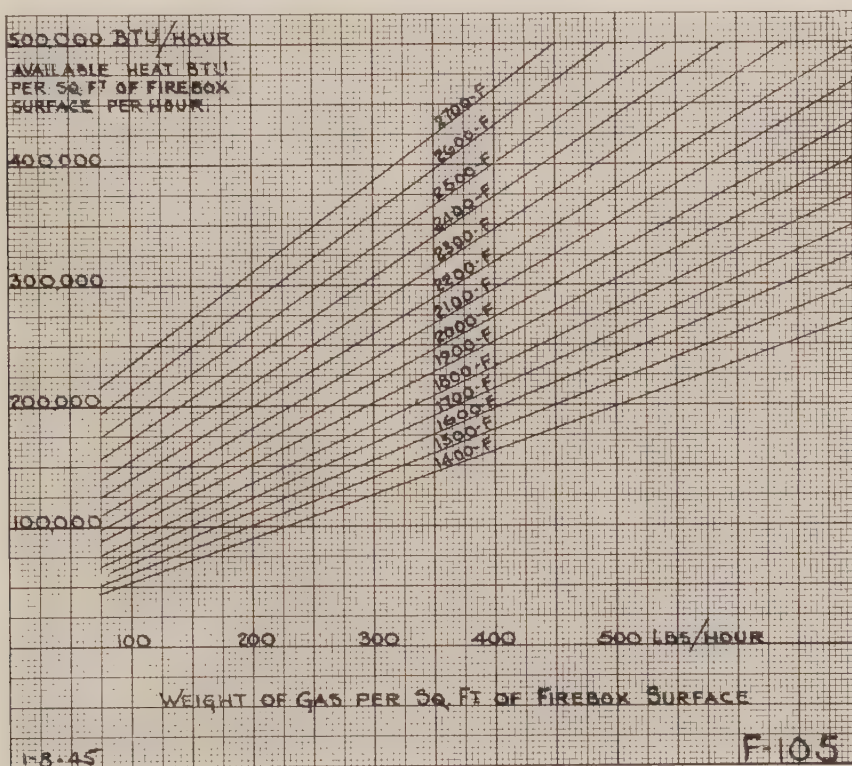 500,000 BTU/HOUR
AVAILABLE HEAT BTU
PER SQ. FT OF FIREBOX
SURFACE PER HOUR.
400,000
300,000
200,000
100,000
2700-F
2600-F
2500-F
2400-F
2300-F
2200-F
2100-F
2000-F
1900-F
1800-F
1700-F
1600-F
1500-F
1400-F
100 200 300 400 500 LBS/HOUR
WEIGHT OF GAS PER SQ. FT OF FIREBOX SURFACE
1-8-45 F-105